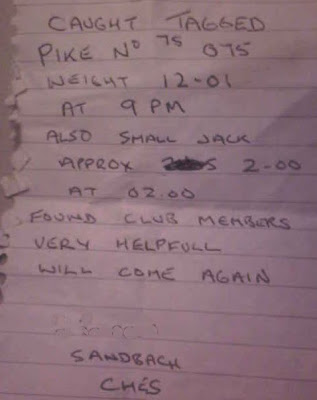 CAUGHT TAGGED
PIKE Nº 75 075
WEIGHT 12-01
AT 9 PM
ALSO SMALL JACK
APPROX 2-00
AT 02.00
FOUND CLUB MEMBERS
VERY HELPFULL
WILL COME AGAIN
SANDBACH
CHES